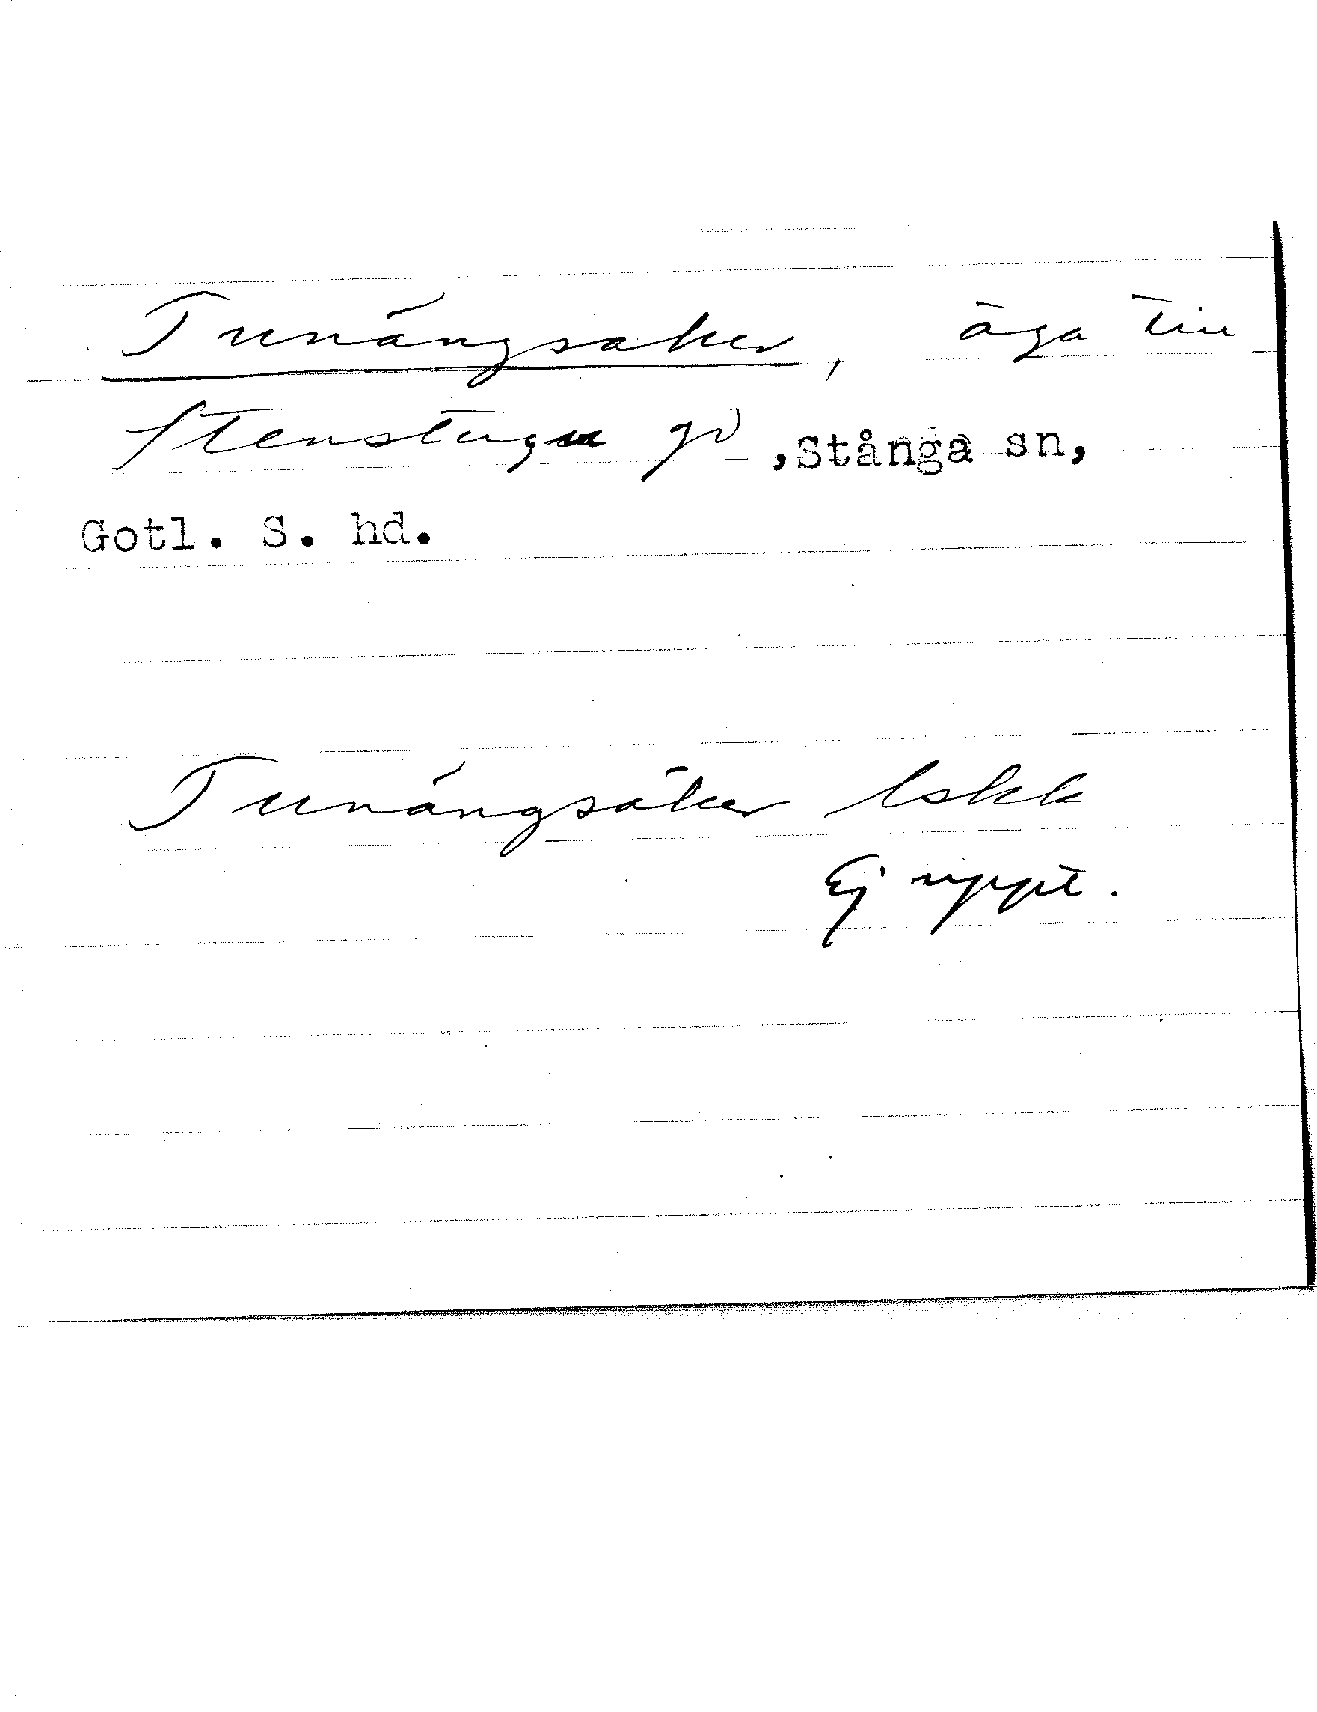 Tunängsåker, äga till
Stenstugu gd, Stånga sn,
Gotl. S. hd.
Tunängsåker lskk
Ej uppt.